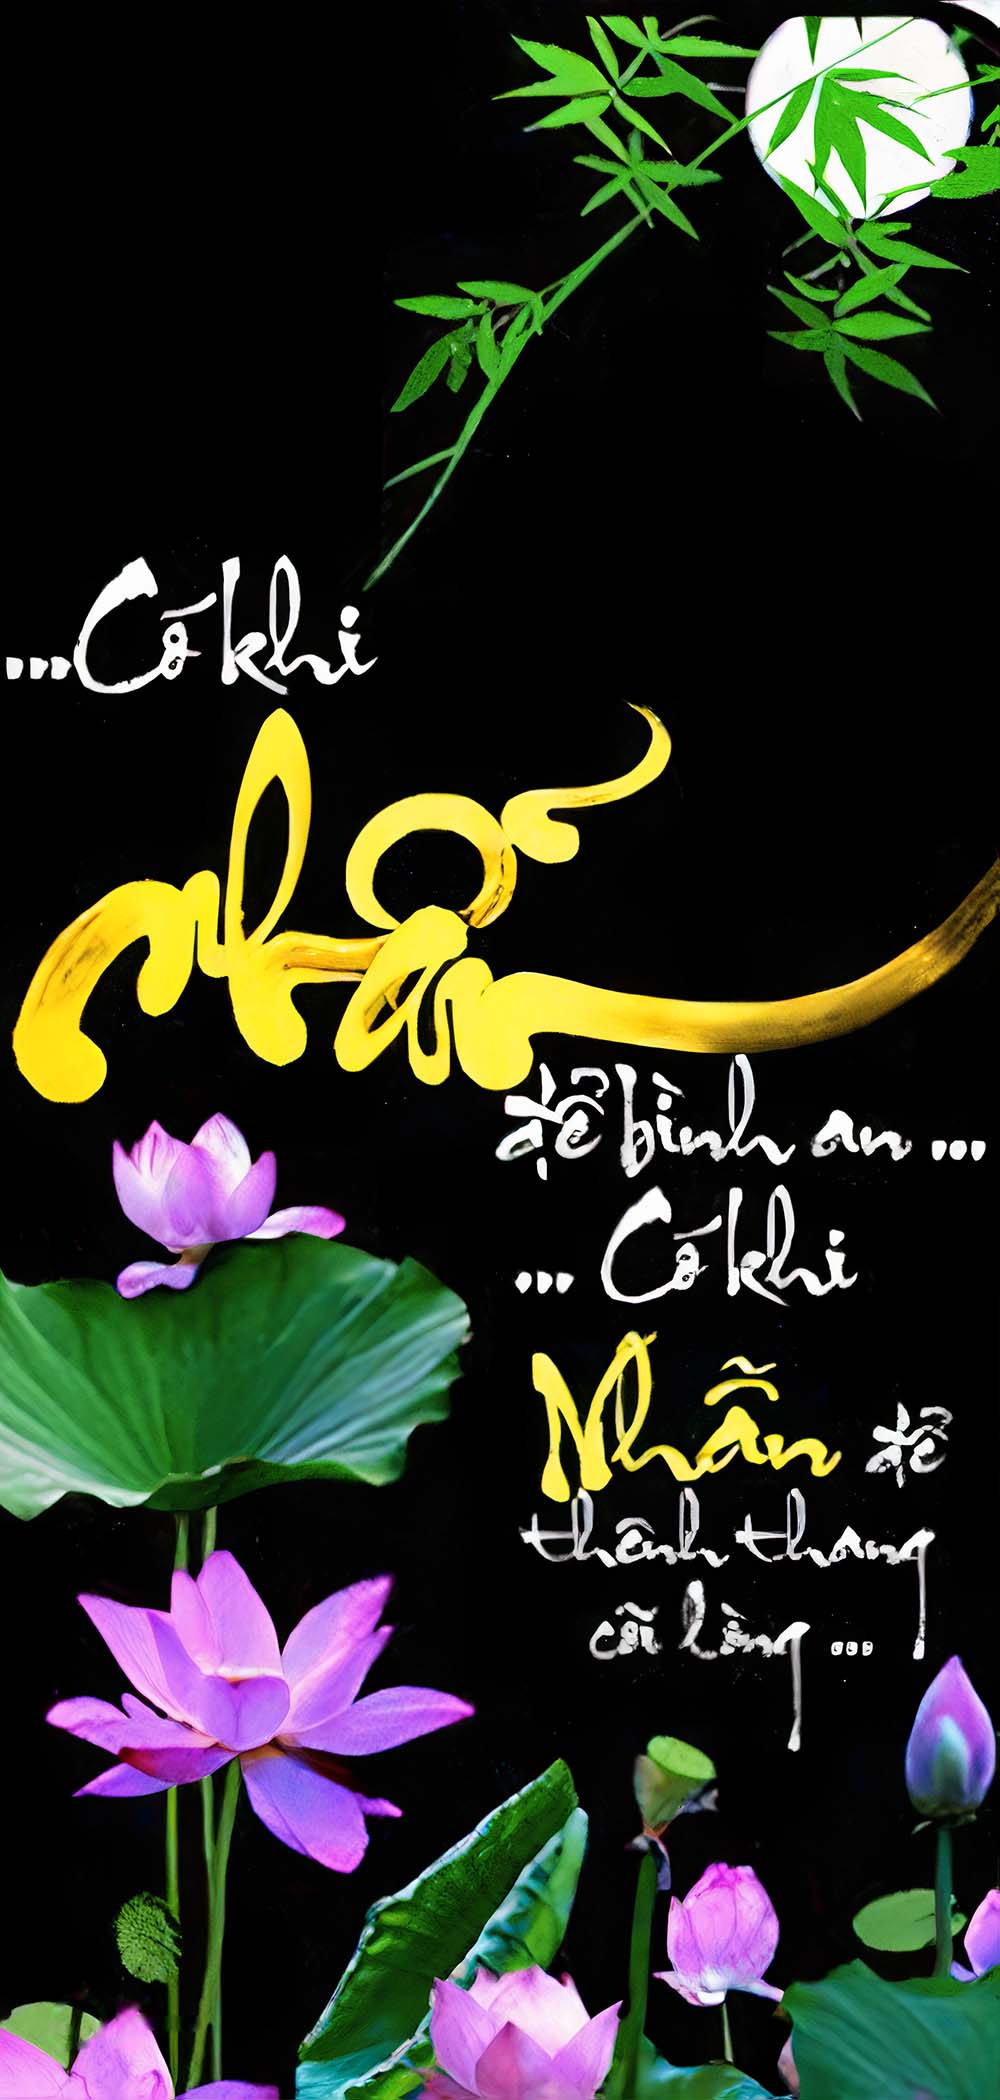 ...Có khi
nhẫn
để bình an ...
... Có khi
Nhẫn để
thênh thang
cõi lòng ...